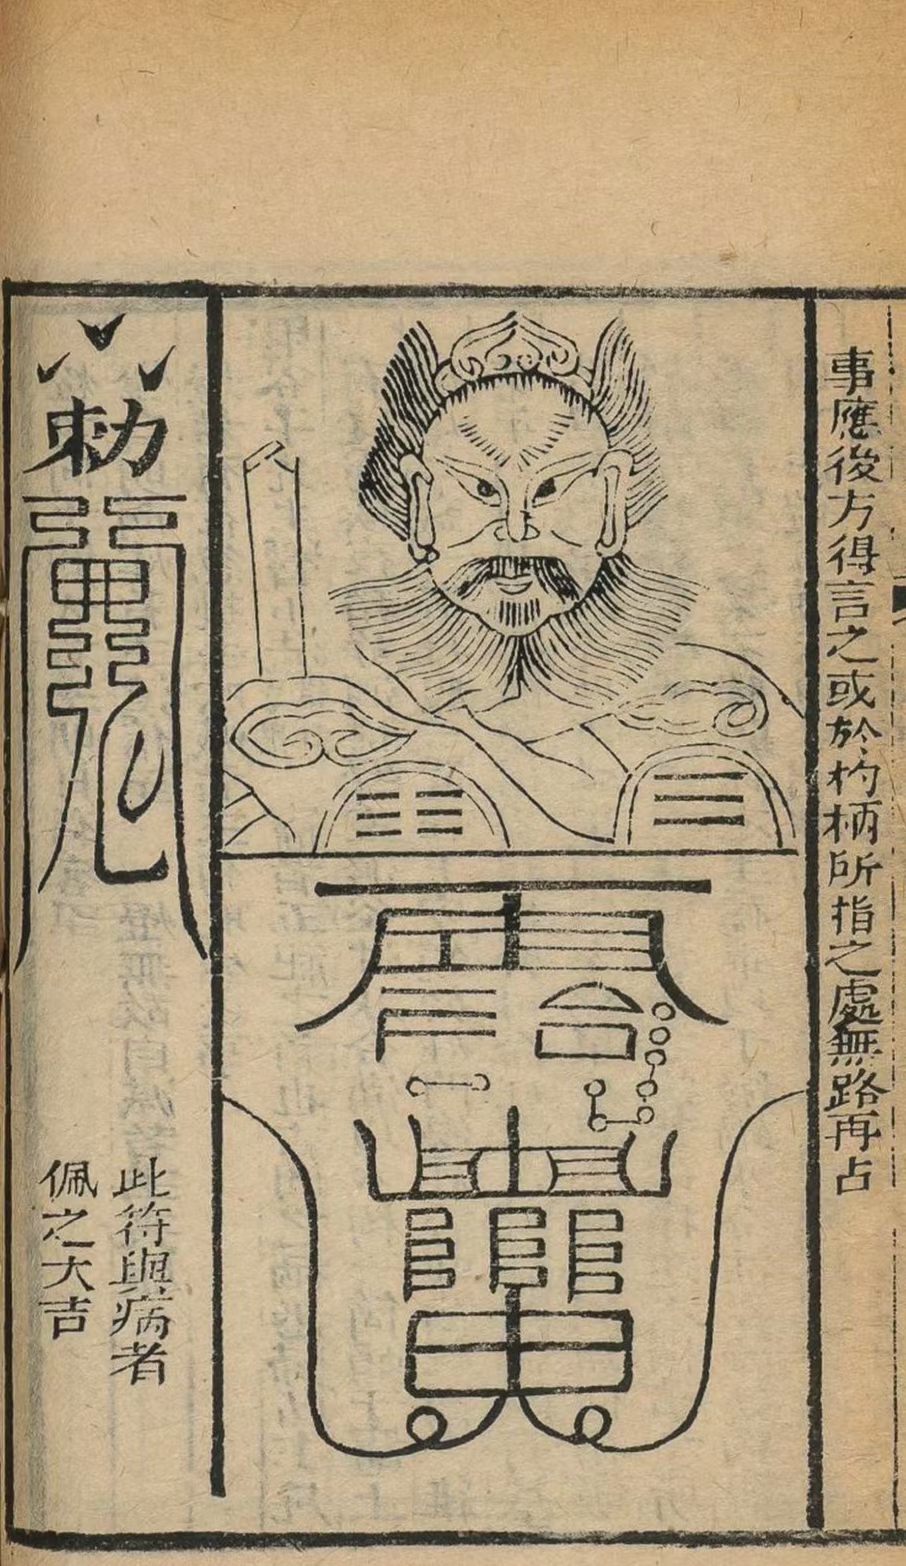 事應後方得言之或於杓柄所指之處無路再占
勅
此符與病者
佩之大吉